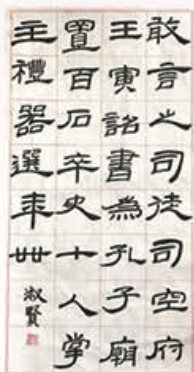 敢言之司徒司空府
壬寅詔書為孔子廟
置百石卒史十人掌
主禮器選年卌
淑賢